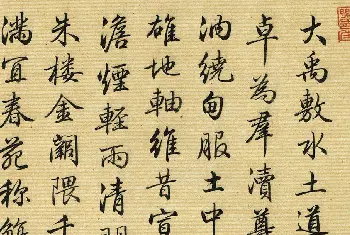 大禹敷水土道
卓為羣瀆尊
汭繞甸服土中
雄地軸維昔宣
澹煙輕雨清明
朱楼金闕隈千
滿宜春苑称